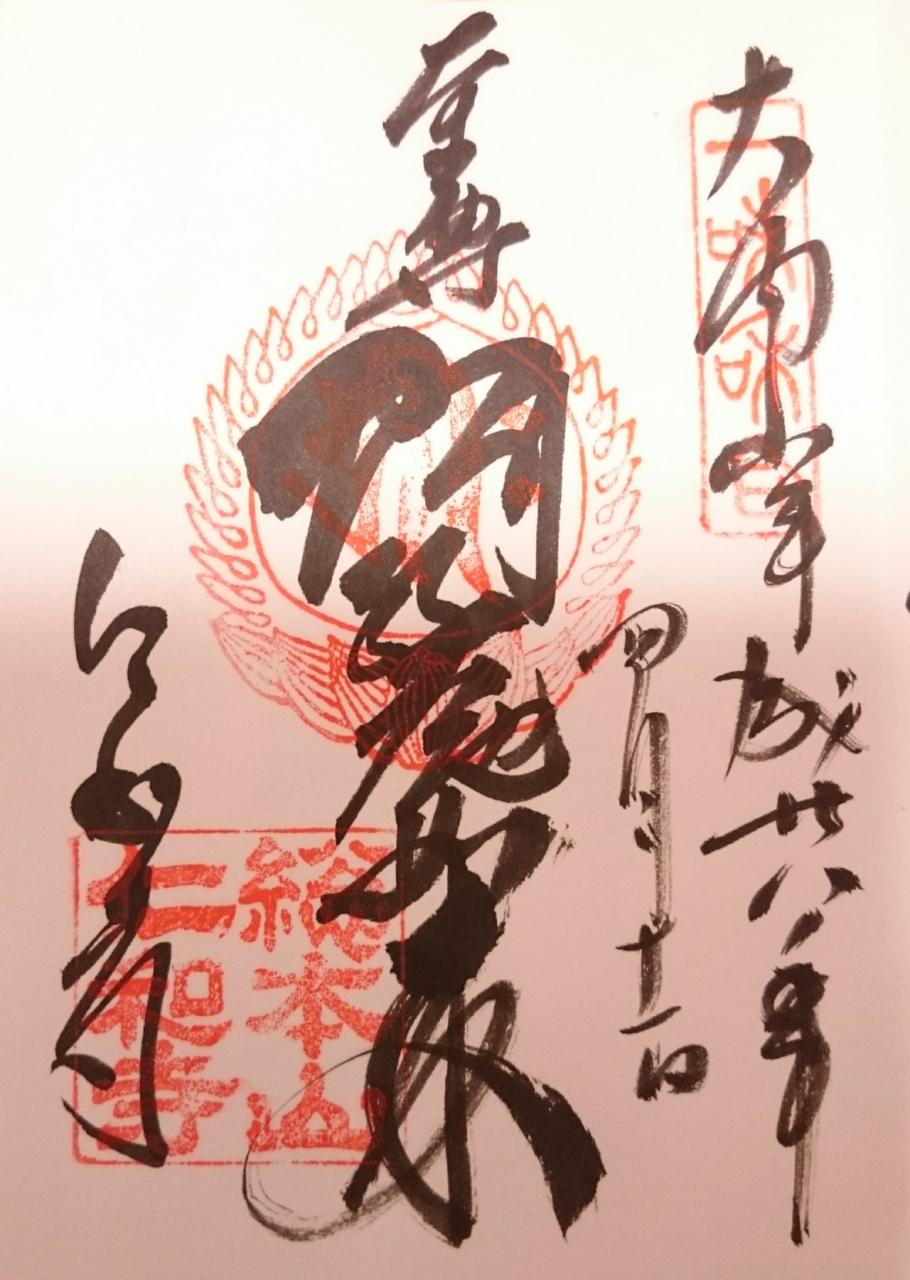 大内山
平成廿八年
四月十一日
本尊
阿弥陀如来
総本山
仁和寺
仁和寺